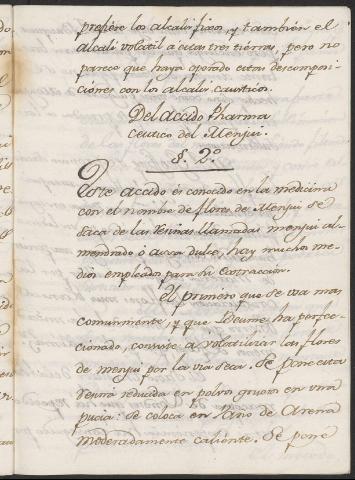 prefiere los alcalis ficos, y tambien el
alcali volatil a estas tres tierras, pero no
parece que haya operado estas descomposi
ciones con los alcalis causticos.
Del Accido Pharma
ceutico del Menjui.
§. 2.º
Este accido es conocido en la medicina
con el nombre de flores de Menjui se
saca de las Resinas llamadas menjui al-
mendrado ò assa dulce, hay muchos me-
dios empleados para su Extraccion.
El primero que se usa mas
comunmente, y que Beume ha perfec-
cionado, consiste a volatilizar las flores
de menjui por la via seca. Se pone esta
resina reducida en polvos gruesos en una
se coloca en Baño de Arena
moderadamente caliente. Se pone